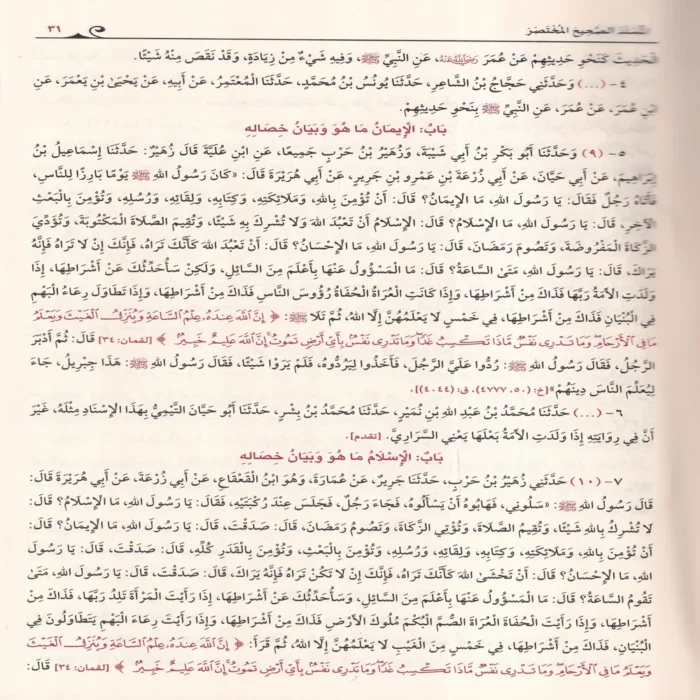 المسند الصحيح المختصر ٣١
الحَدِيثَ كَنَحْوِ حَدِيثِهِمْ عَنْ عُمَرَ رَضِيَ اللهُ عَنْهُ، عَنِ النَّبِيِّ ﷺ، وَفِيهِ شَيْءٌ مِنْ زِيَادَةٍ، وَقَدْ نَقَصَ مِنْهُ شَيْئًا.
٤- (...) وَحَدَّثَنِي حَجَّاجُ بْنُ الشَّاعِرِ، حَدَّثَنَا يُونُسُ بْنُ مُحَمَّدٍ، حَدَّثَنَا المُعْتَمِرُ، عَنْ أَبِيهِ، عَنْ يَحْيَى بْنِ يَعْمَرَ، عَنِ
ابْنِ عُمَرَ، عَنْ عُمَرَ، عَنِ النَّبِيِّ ﷺ بِنَحْوِ حَدِيثِهِمْ.
بَابٌ: الْإِيمَانُ مَا هُوَ وَبَيَانُ خِصَالِهِ
٥- (٩) وَحَدَّثَنَا أَبُو بَكْرِ بْنُ أَبِي شَيْبَةَ، وَزُهَيْرُ بْنُ حَرْبٍ جَمِيعًا، عَنِ ابْنِ عُلَيَّةَ قَالَ زُهَيْرٌ: حَدَّثَنَا إِسْمَاعِيلُ بْنُ
إِبْرَاهِيمَ، عَنْ أَبِي حَيَّانَ، عَنْ أَبِي زُرْعَةَ بْنِ عَمْرِو بْنِ جَرِيرٍ، عَنْ أَبِي هُرَيْرَةَ قَالَ: «كَانَ رَسُولُ اللهِ ﷺ يَوْمًا بَارِزًا لِلنَّاسِ،
فَأَتَاهُ رَجُلٌ فَقَالَ: يَا رَسُولَ اللهِ، مَا الْإِيمَانُ؟ قَالَ: أَنْ تُؤْمِنَ بِاللهِ، وَمَلَائِكَتِهِ، وَكِتَابِهِ، وَلِقَائِهِ، وَرُسُلِهِ، وَتُؤْمِنَ بِالْبَعْثِ
الْآخِرِ، قَالَ: يَا رَسُولَ اللهِ، مَا الْإِسْلَامُ؟ قَالَ: الْإِسْلَامُ أَنْ تَعْبُدَ اللهَ وَلَا تُشْرِكَ بِهِ شَيْئًا، وَتُقِيمَ الصَّلَاةَ الْمَكْتُوبَةَ، وَتُؤَدِّيَ
الزَّكَاةَ الْمَفْرُوضَةَ، وَتَصُومَ رَمَضَانَ، قَالَ: يَا رَسُولَ اللهِ، مَا الْإِحْسَانُ؟ قَالَ: أَنْ تَعْبُدَ اللهَ كَأَنَّكَ تَرَاهُ، فَإِنَّكَ إِنْ لَا تَرَاهُ فَإِنَّهُ
يَرَاكَ، قَالَ: يَا رَسُولَ اللهِ، مَتَى السَّاعَةُ؟ قَالَ: مَا الْمَسْؤُولُ عَنْهَا بِأَعْلَمَ مِنَ السَّائِلِ، وَلَكِنْ سَأُحَدِّثُكَ عَنْ أَشْرَاطِهَا، إِذَا
وَلَدَتِ الْأَمَةُ رَبَّهَا فَذَاكَ مِنْ أَشْرَاطِهَا، وَإِذَا كَانَتِ الْعُرَاةُ الْحُفَاةُ رُؤُوسَ النَّاسِ فَذَاكَ مِنْ أَشْرَاطِهَا، وَإِذَا تَطَاوَلَ رِعَاءُ الْبَهْمِ
فِي الْبُنْيَانِ فَذَاكَ مِنْ أَشْرَاطِهَا، فِي خَمْسٍ لَا يَعْلَمُهُنَّ إِلَّا اللهُ، ثُمَّ تَلَا ﷺ: ﴿ إِنَّ اللَّهَ عِندَهُ عِلْمُ السَّاعَةِ وَيُنَزِّلُ الْغَيْثَ وَيَعْلَمُ
مَا فِي الْأَرْحَامِ وَمَا تَدْرِي نَفْسٌ مَّاذَا تَكْسِبُ غَدًا وَمَا تَدْرِي نَفْسٌ بِأَيِّ أَرْضٍ تَمُوتُ إِنَّ اللَّهَ عَلِيمٌ خَبِيرٌ ﴾ [لقمان: ٣٤] قَالَ: ثُمَّ أَدْبَرَ
الرَّجُلُ، فَقَالَ رَسُولُ اللهِ ﷺ: رُدُّوا عَلَيَّ الرَّجُلَ، فَأَخَذُوا لِيَرُدُّوهُ، فَلَمْ يَرَوْا شَيْئًا، فَقَالَ رَسُولُ اللهِ ﷺ: هَذَا جِبْرِيلُ، جَاءَ
لِيُعَلِّمَ النَّاسَ دِينَهُمْ» [خ: (٥٠، ٤٧٧٧)، ق: (٤٠٤٤)].
٦- (...) حَدَّثَنَا مُحَمَّدُ بْنُ عَبْدِ اللهِ بْنِ نُمَيْرٍ، حَدَّثَنَا مُحَمَّدُ بْنُ بِشْرٍ، حَدَّثَنَا أَبُو حَيَّانَ التَّيْمِيُّ بِهَذَا الْإِسْنَادِ مِثْلَهُ، غَيْرَ
أَنَّ فِي رِوَايَتِهِ إِذَا وَلَدَتِ الْأَمَةُ بَعْلَهَا يَعْنِي السَّرَارِيَّ. [تقدم].
بَابٌ: الْإِسْلَامُ مَا هُوَ وَبَيَانُ خِصَالِهِ
٧- (١٠) حَدَّثَنِي زُهَيْرُ بْنُ حَرْبٍ، حَدَّثَنَا جَرِيرٌ، عَنْ عُمَارَةَ، وَهُوَ ابْنُ الْقَعْقَاعِ، عَنْ أَبِي زُرْعَةَ، عَنْ أَبِي هُرَيْرَةَ قَالَ:
قَالَ رَسُولُ اللهِ ﷺ: «سَلُونِي، فَهَابُوهُ أَنْ يَسْأَلُوهُ، فَجَاءَ رَجُلٌ، فَجَلَسَ عِنْدَ رُكْبَتَيْهِ، فَقَالَ: يَا رَسُولَ اللهِ، مَا الْإِسْلَامُ؟ قَالَ:
لَا تُشْرِكُ بِاللهِ شَيْئًا، وَتُقِيمُ الصَّلَاةَ، وَتُؤْتِي الزَّكَاةَ، وَتَصُومُ رَمَضَانَ، قَالَ: صَدَقْتَ، قَالَ: يَا رَسُولَ اللهِ، مَا الْإِيمَانُ؟ قَالَ:
أَنْ تُؤْمِنَ بِاللهِ، وَمَلَائِكَتِهِ، وَكِتَابِهِ، وَلِقَائِهِ، وَرُسُلِهِ، وَتُؤْمِنَ بِالْبَعْثِ، وَتُؤْمِنَ بِالْقَدَرِ كُلِّهِ، قَالَ: صَدَقْتَ، قَالَ: يَا رَسُولَ
اللهِ، مَا الْإِحْسَانُ؟ قَالَ: أَنْ تَخْشَى اللهَ كَأَنَّكَ تَرَاهُ، فَإِنَّكَ إِنْ لَا تَكُنْ تَرَاهُ فَإِنَّهُ يَرَاكَ، قَالَ: صَدَقْتَ، قَالَ: يَا رَسُولَ اللهِ، مَتَى
تَقُومُ السَّاعَةُ؟ قَالَ: مَا الْمَسْؤُولُ عَنْهَا بِأَعْلَمَ مِنَ السَّائِلِ، وَسَأُحَدِّثُكَ عَنْ أَشْرَاطِهَا، إِذَا رَأَيْتَ الْمَرْأَةَ تَلِدُ رَبَّهَا، فَذَاكَ مِنْ
أَشْرَاطِهَا، وَإِذَا رَأَيْتَ الْحُفَاةَ الْعُرَاةَ الصُّمَّ الْبُكْمَ مُلُوكَ الْأَرْضِ فَذَاكَ مِنْ أَشْرَاطِهَا، وَإِذَا رَأَيْتَ رِعَاءَ الْبَهْمِ يَتَطَاوَلُونَ فِي
الْبُنْيَانِ، فَذَاكَ مِنْ أَشْرَاطِهَا، فِي خَمْسٍ مِنَ الْغَيْبِ لَا يَعْلَمُهُنَّ إِلَّا اللهُ، ثُمَّ قَرَأَ: ﴿ إِنَّ اللَّهَ عِندَهُ عِلْمُ السَّاعَةِ وَيُنَزِّلُ الْغَيْثَ
وَيَعْلَمُ مَا فِي الْأَرْحَامِ وَمَا تَدْرِي نَفْسٌ مَّاذَا تَكْسِبُ غَدًا وَمَا تَدْرِي نَفْسٌ بِأَيِّ أَرْضٍ تَمُوتُ إِنَّ اللَّهَ عَلِيمٌ خَبِيرٌ ﴾ [لقمان: ٣٤] قَالَ: